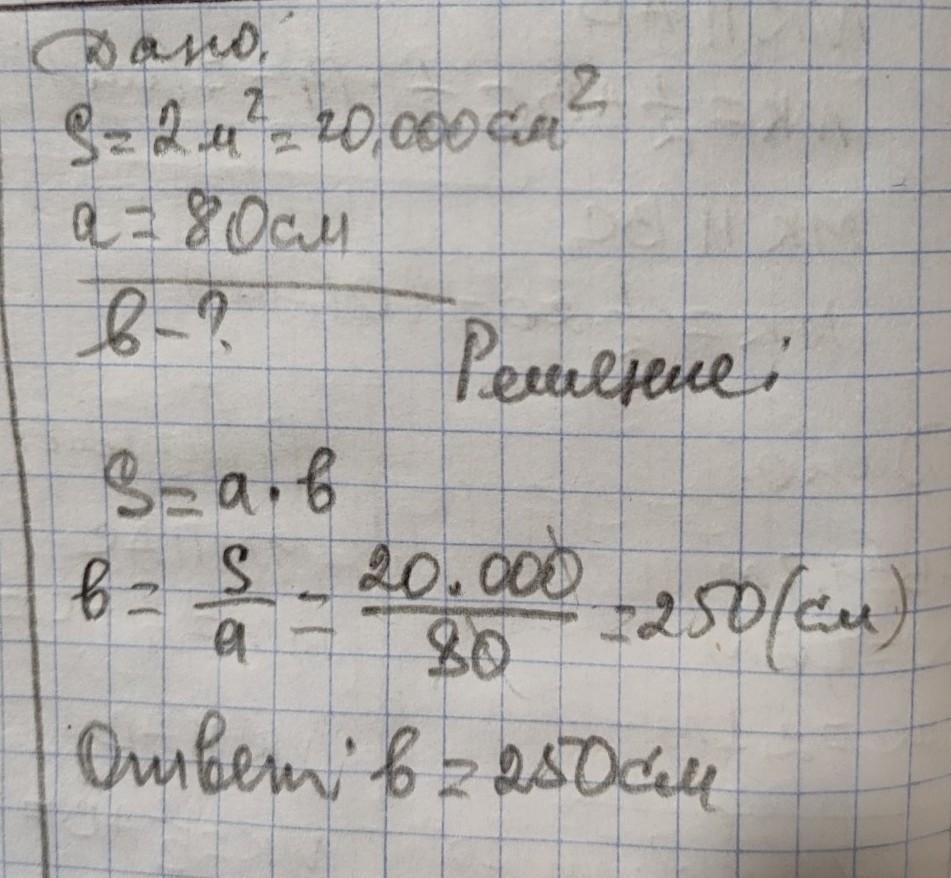 Дано:
S = 2 м² = 20.000 см²
a = 80 см
в - ?
Решение:
S = a · в
в = S/a = 20.000/80 = 250 (см)
Ответ: в = 250 см